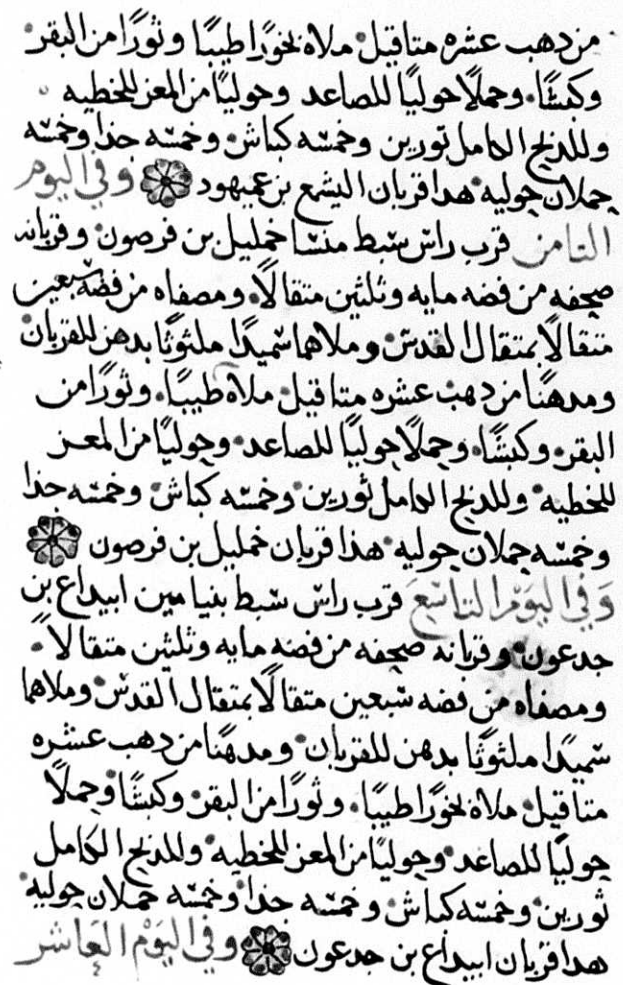 من دهب عشره متاقيل ملاه بخورًا طيبًا وثورًا من البقر
وكبشًا وحملًا حوليًا للصاعد وحوليًا من المعز للخطيه
وللذبح الكامل تورين وخمسه كباش وخمسه جدا وخمسه
حملان حوليه هدا قربان اليشمع بن عميهود وفي اليوم
التامن قرب راس سبط منسا خمليل بن فرصون وقربانه
صحفه من فضه مايه وثلثين متقالًا ومصفاه من فضه سبعين
متقالًا بمتقال القدس وملاهما سميدًا ملثوثًا بدهن للقربان
ومدهنًا من دهب عشره متاقيل ملاه طيبًا وثورًا من
البقر وكبشًا وحملًا حوليًا للصاعد وحوليًا من المعز
للخطيه وللذبح الكامل ثورين وخمسه كباش وخمسه جدا
وخمسه حملان حوليه هذا قربان خمليل بن فرصون
وَفي اليَوْم التاسِعَ قرب راس سبط بنيامين ابيداع بن
جدعون وقربانه صحفه من فضه مايه وثلثين متقالاً
ومصفاه من فضه سبعين متقالًا بمتقال القدس وملاهما
سميدًا ملثوثًا بدهن للقربان ومدهنًا من دهب عشره
متاقيل ملاه بخورًا طيبًا وثورًا من البقر وكبشًا وحملًا
حوليًا للصاعد وحوليًا من المعز للخطيه وللذبح الكامل
ثورين وخمسه كباش وخمسه جدا وخمسه حملان حوليه
هدا قربان ابيداع بن جدعون وفي اليَوْم العَاشر